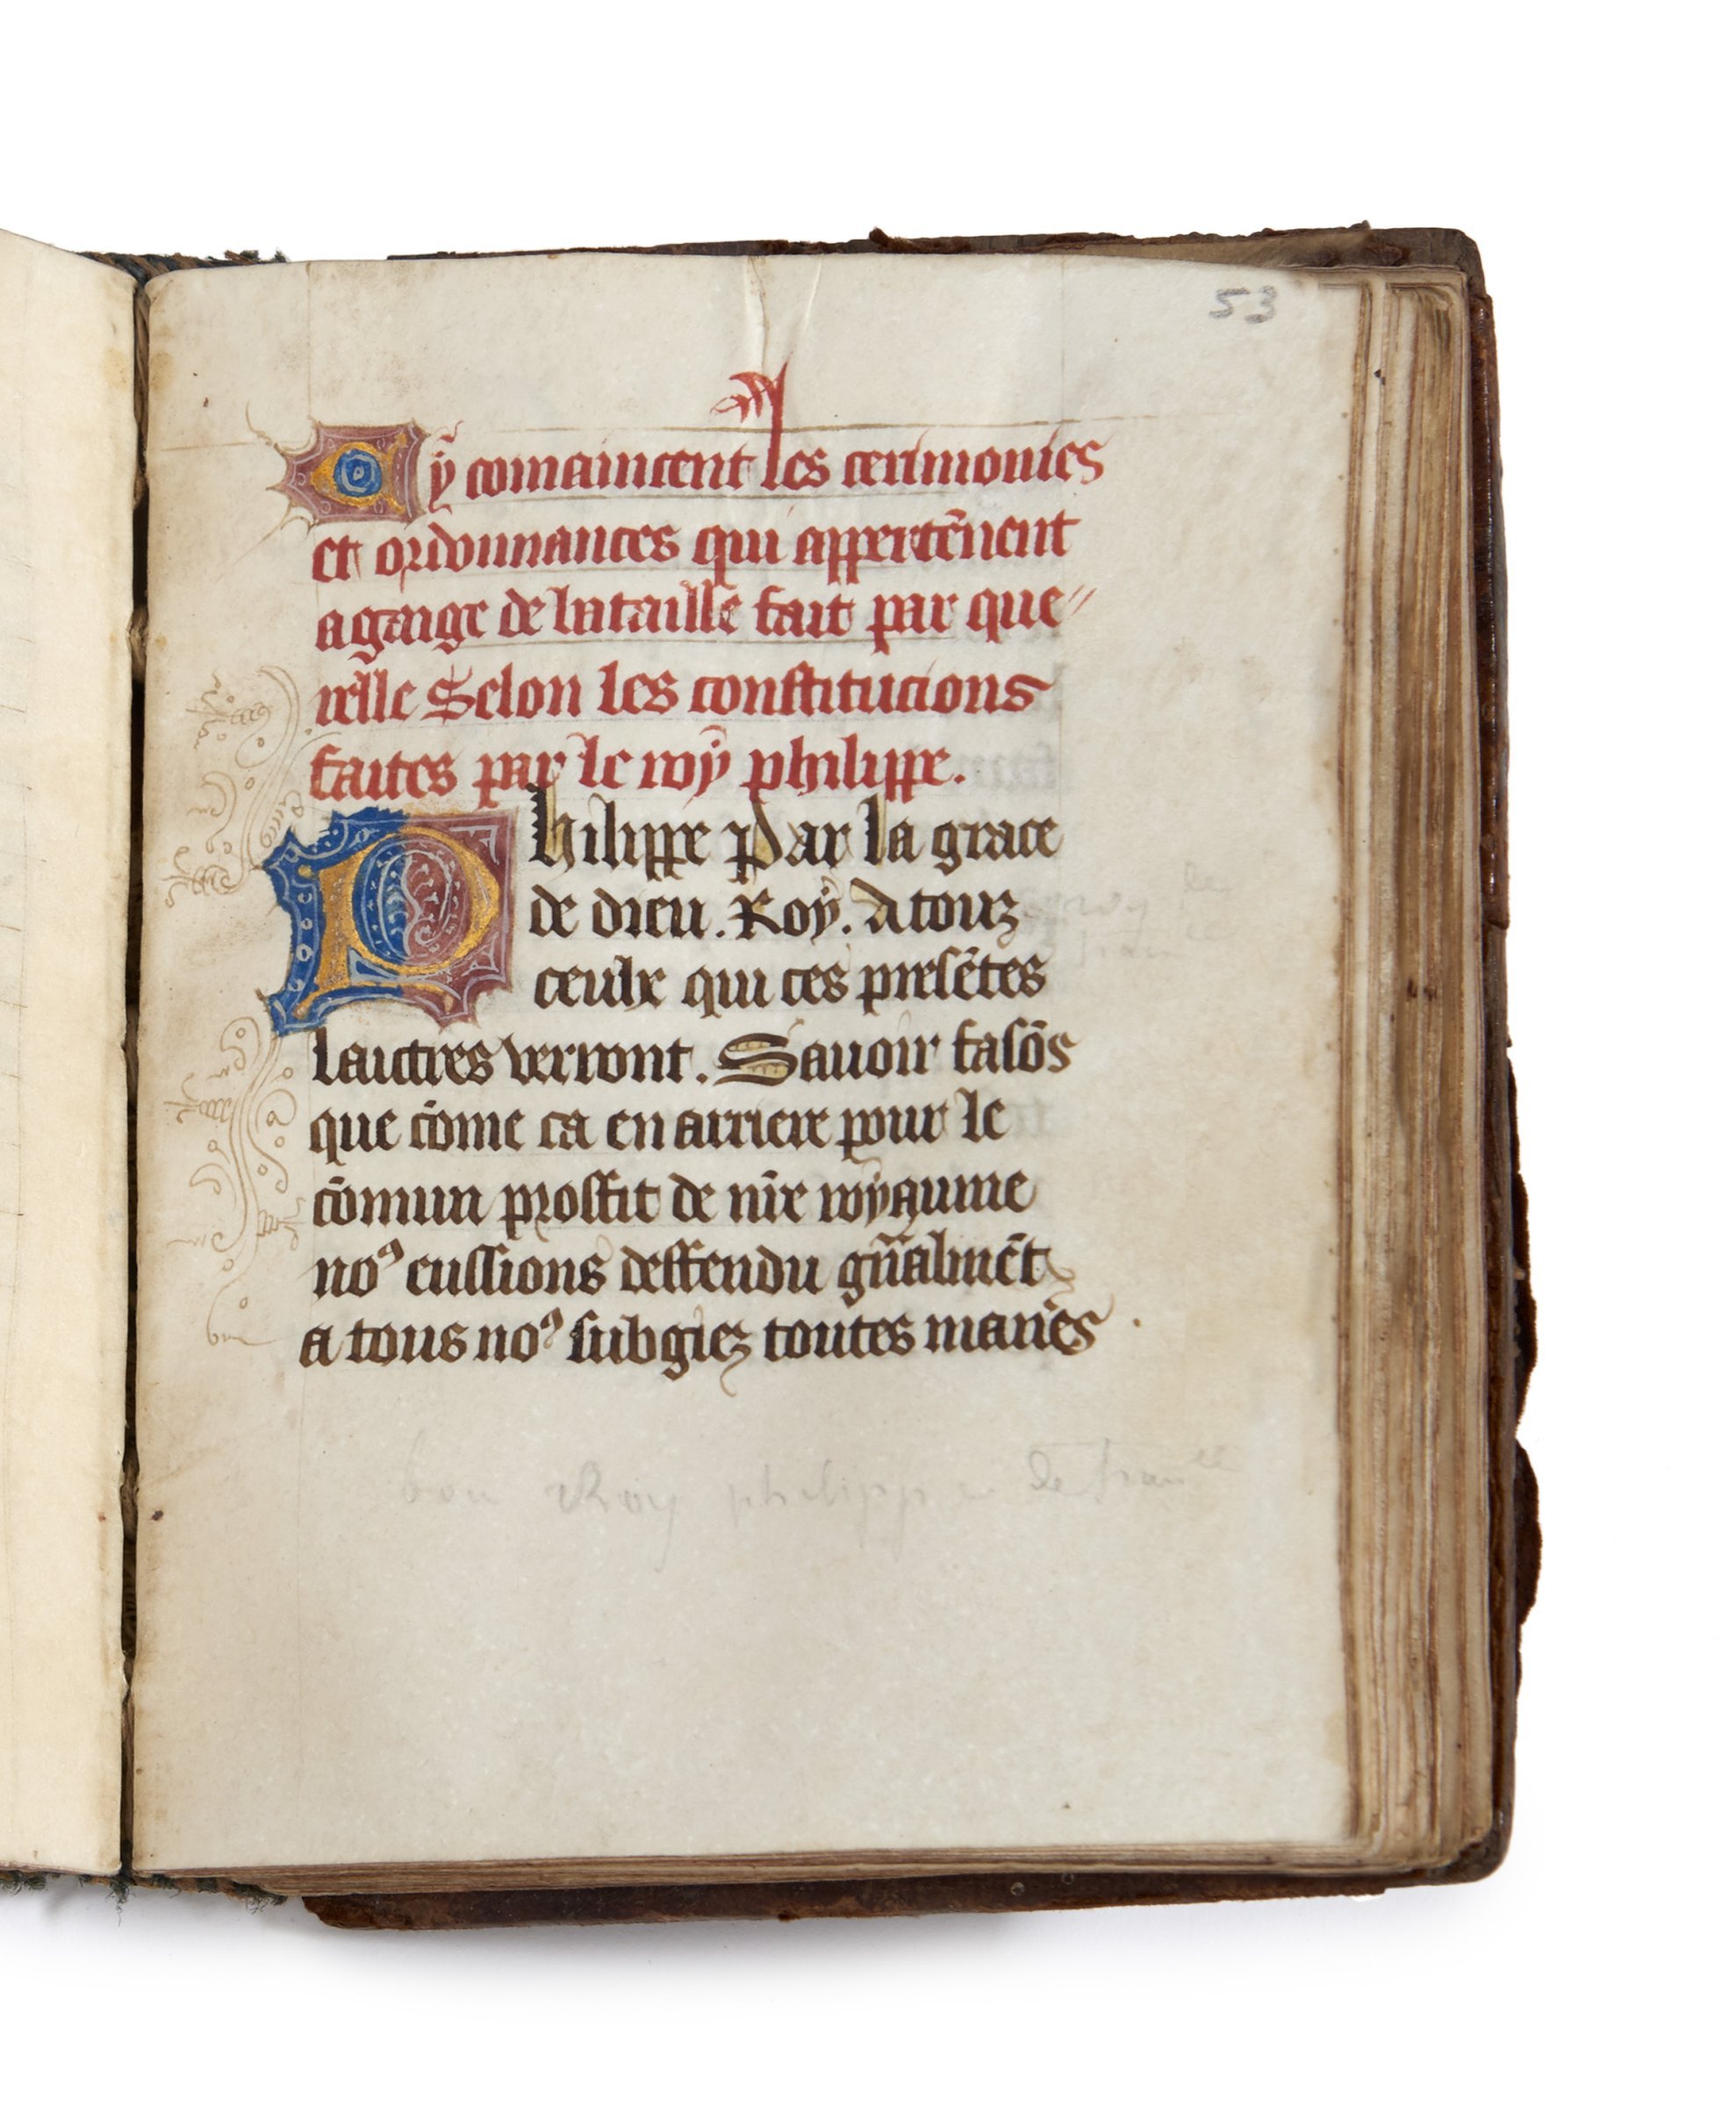 53
Cy comaincent les cerimonies
et ordonnances qui appertēnent
a gaige de bataille fait par que
relle Selon les constitucions
faites par le roy philippe.
Philippe Par la grace
de dieu. Roy. A touz
ceulx qui ces presētes
laictres verront. Sauoir fasōs
que cōme ca en arriere pour le
cōmun proffit de nr̄e royaume
noꝯ eussions deffendu gn̄almēt
a tous noꝯ subgiez toutes manēs
bon Roy philippe de